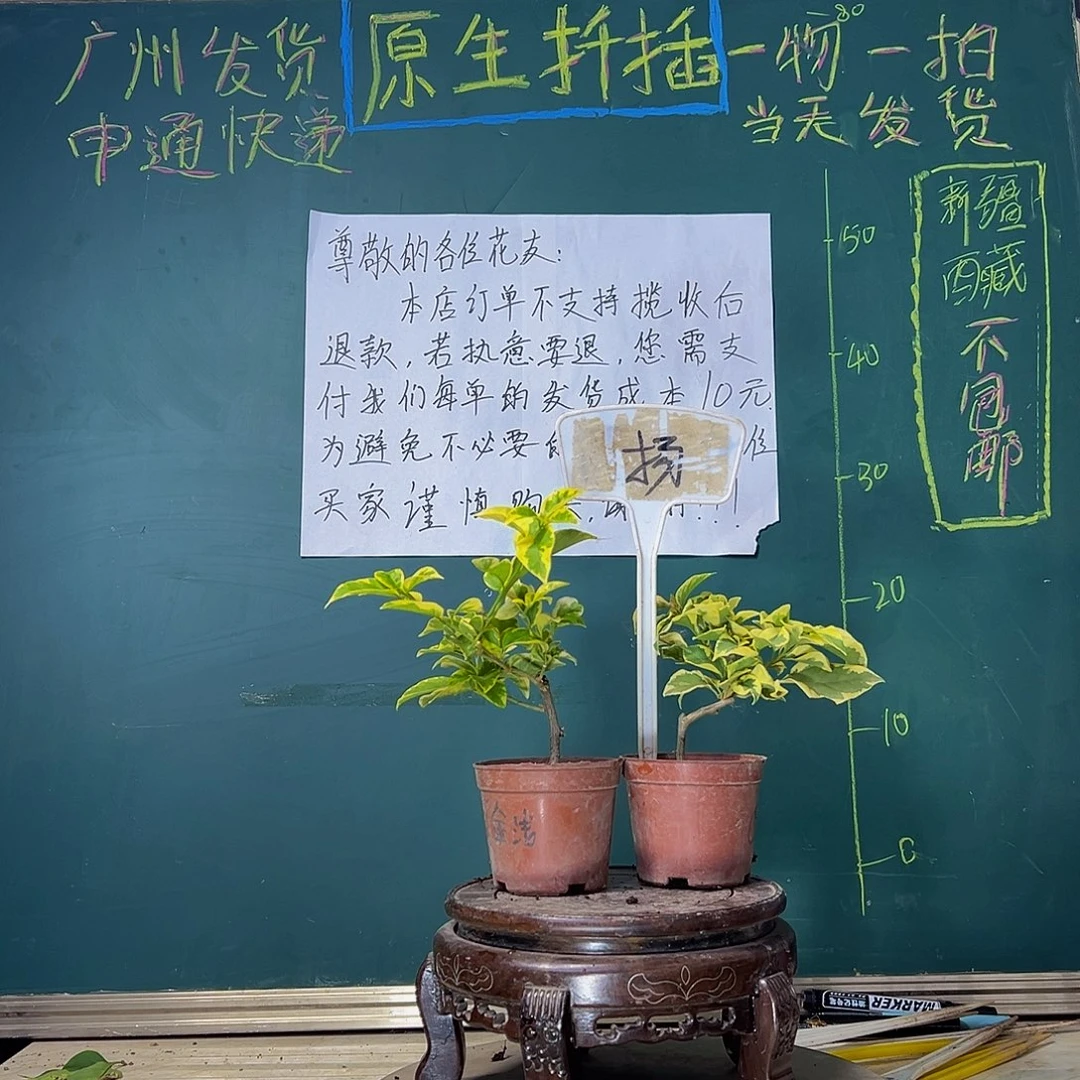 广州发货
申通快递
原生扦插
一物一拍
当天发货
新疆
西藏
不包邮
尊敬的各位花友:
本店订单不支持揽收后
退款,若执意要退,您需支
付我们每单的发货成本10元
为避免不必要
位
买家谨慎购
!!!
扬
50
40
30
20
10
0
MARKER